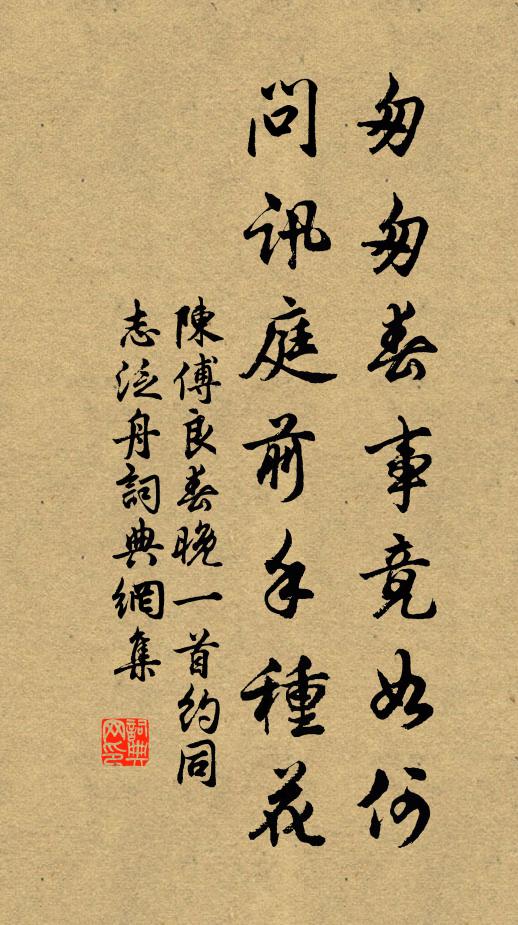 匆匆春事竟如何
問訊庭前手種花
陳傅良春晚一首約同
志泛舟詞典網集
詞典网印